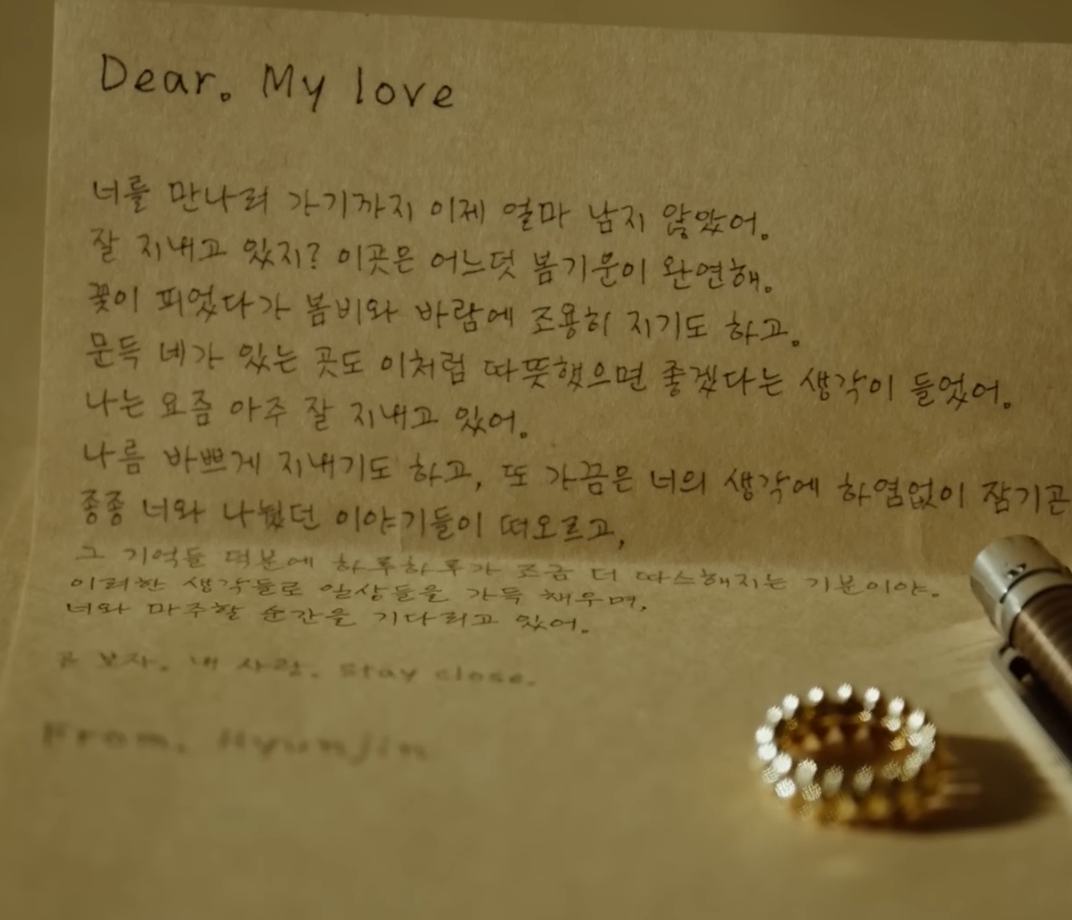 Dear. My love
너를 만나러 가기까지 이제 얼마 남지 않았어.
잘 지내고 있지? 이곳은 어느덧 봄기운이 완연해.
꽃이 피었다가 봄비와 바람에 조용히 지기도 하고.
문득 네가 있는 곳도 이처럼 따뜻했으면 좋겠다는 생각이 들었어.
나는 요즘 아주 잘 지내고 있어.
나름 바쁘게 지내기도 하고, 또 가끔은 너의 생각에 하염없이 잠기곤
종종 너와 나눴던 이야기들이 떠오르고,
그 기억들 덕분에 하루하루가 조금 더 따스해지는 기분이야.
이러한 생각들로 일상들을 가득 채우며,
너와 마주할 순간을 기다리고 있어.
곧 보자. 내 사람. Stay close.
From. Hyunjin